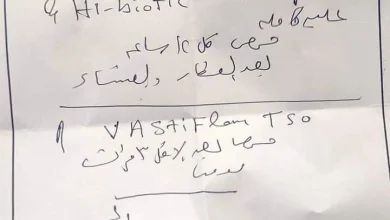 Hi-biotic
علبة كاملة
قرص كل ١٢ ساعه
بعد الفطار والعشاء
VASTiFlam T50
قرص بعد الاكل ٣ مرات
يوميا